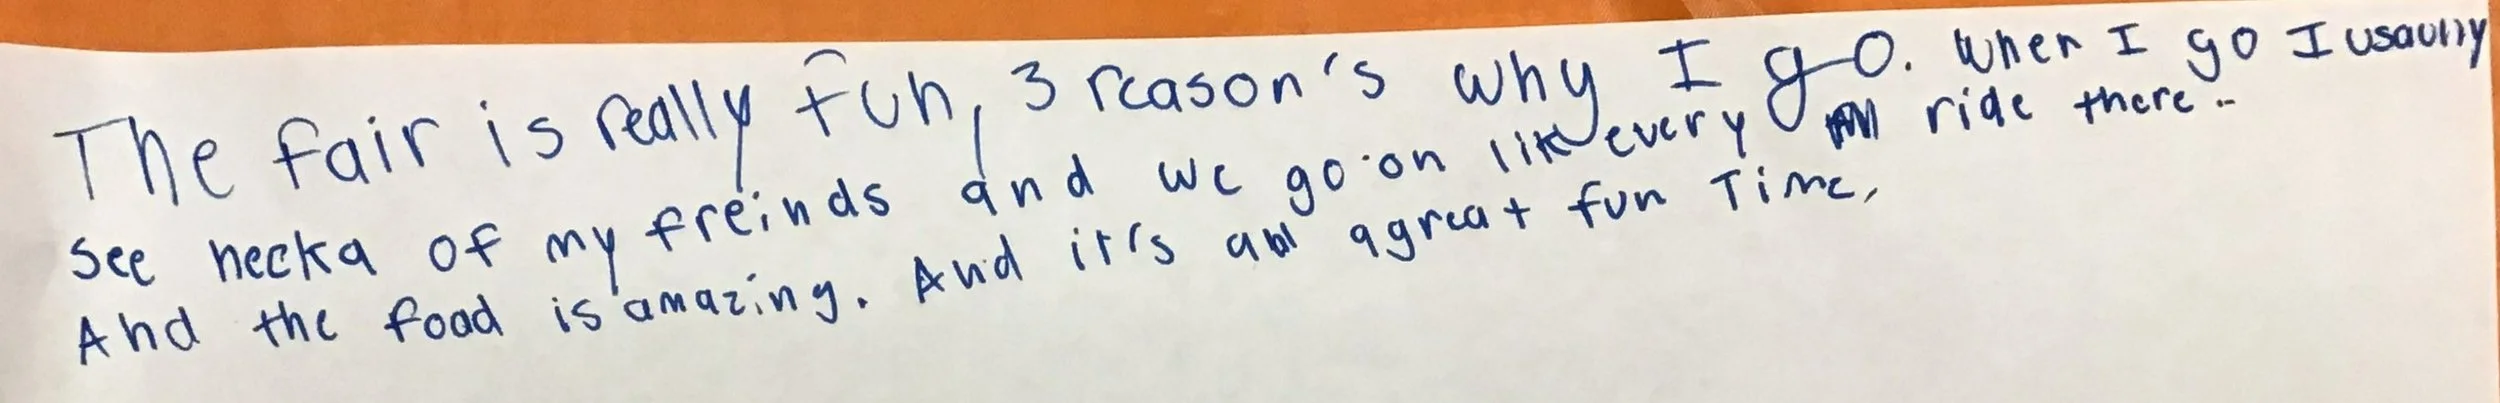 The fair is really fun, 3 reason's why I go. When I go I usaully
see hecka of my freinds and we go on like every ride there..
And the food is amazing. And it's a great fun Time.